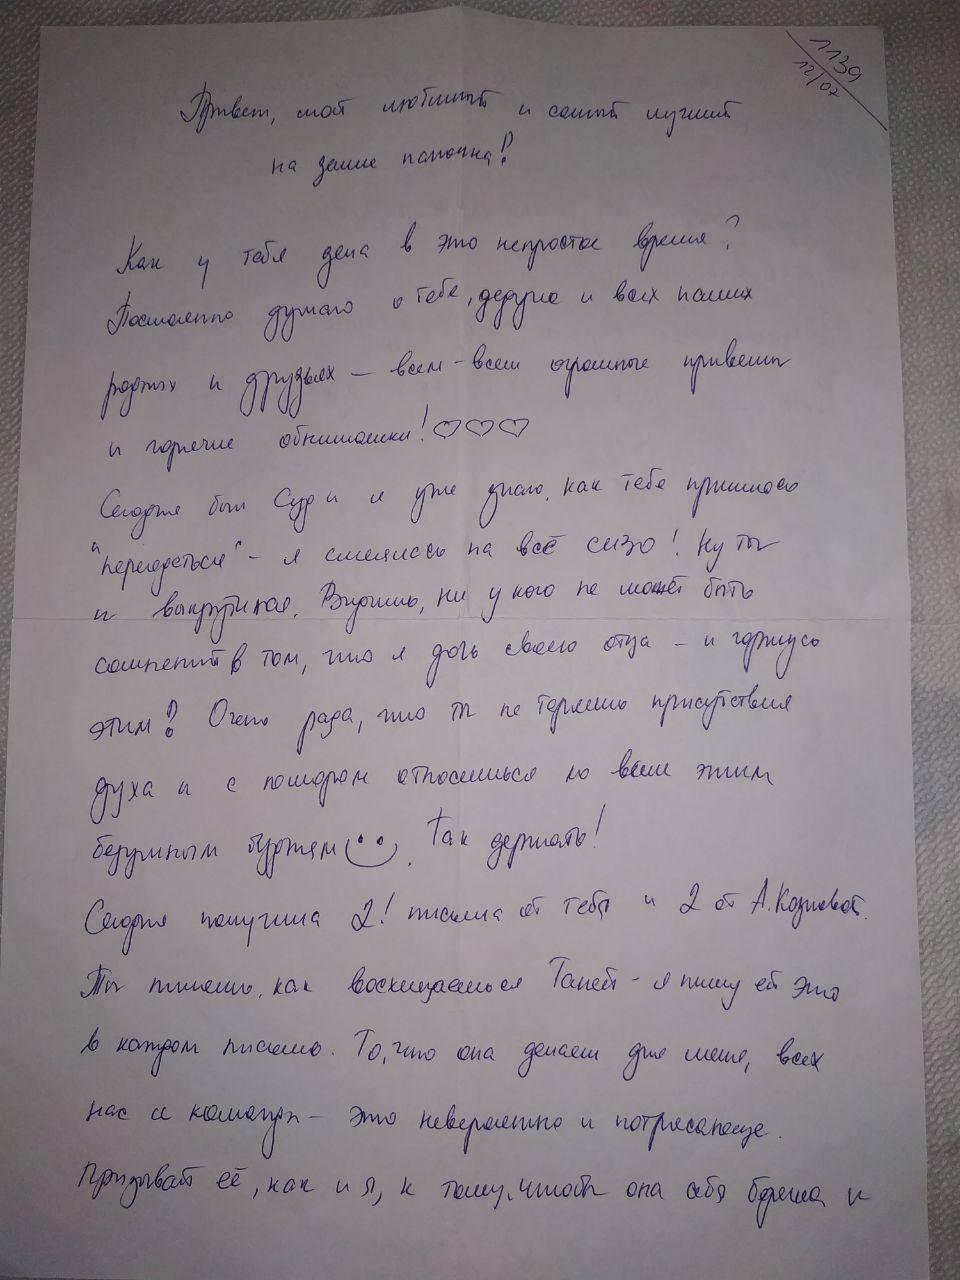 1139
12/07
Привет, мой любимый и самый лучший
на земле папочка!
Как у тебя дела в это непростое время?
Постоянно думаю о тебе, дедушке и всех наших
родных и друзьях – всем-всем огромные приветы
и горячие обнимашки! ♡♡♡
Сегодня был Суд и я уже знаю, как тебе пришлось
"переодеться" – я смеялась на всё СИЗО! Ну ты
и выкрутился. Видишь, ни у кого не может быть
сомнений в том, что я дочь своего отца – и горжусь
этим! Очень рада, что ты не теряешь присутствия
духа и с юмором относишься ко всем этим
безумным буржем. Так держать!
Сегодня получила 2! письма от тебя и 2 от А. Козловой.
Ты пишешь, как восхищаешься Таней – я пишу ей это
в каждом письме. То, что она делает для меня, всех
нас и команды – это невероятно и потрясающе.
Призывай её, как и я, к тому, чтобы она себя берегла и